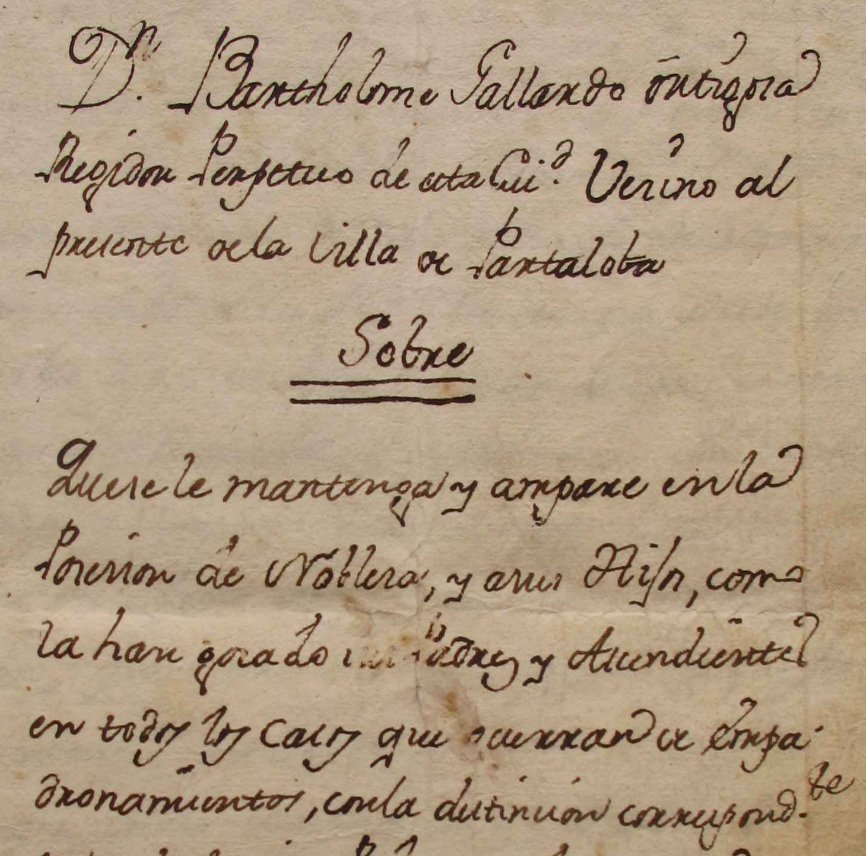 Dn. Bartholome Gallardo Ontigora
Regidor Perpetuo de esta Ciud. Vecino al
presente de la Villa de Partaloba
Sobre
Que se le mantenga y ampare en la
Posesion de Nobleza, y a sus Hijos, como
la han gozado sus Padres y Ascendientes
en todos los Casos que ocurran de Empa-
dronamientos, con la distincion correspond.te